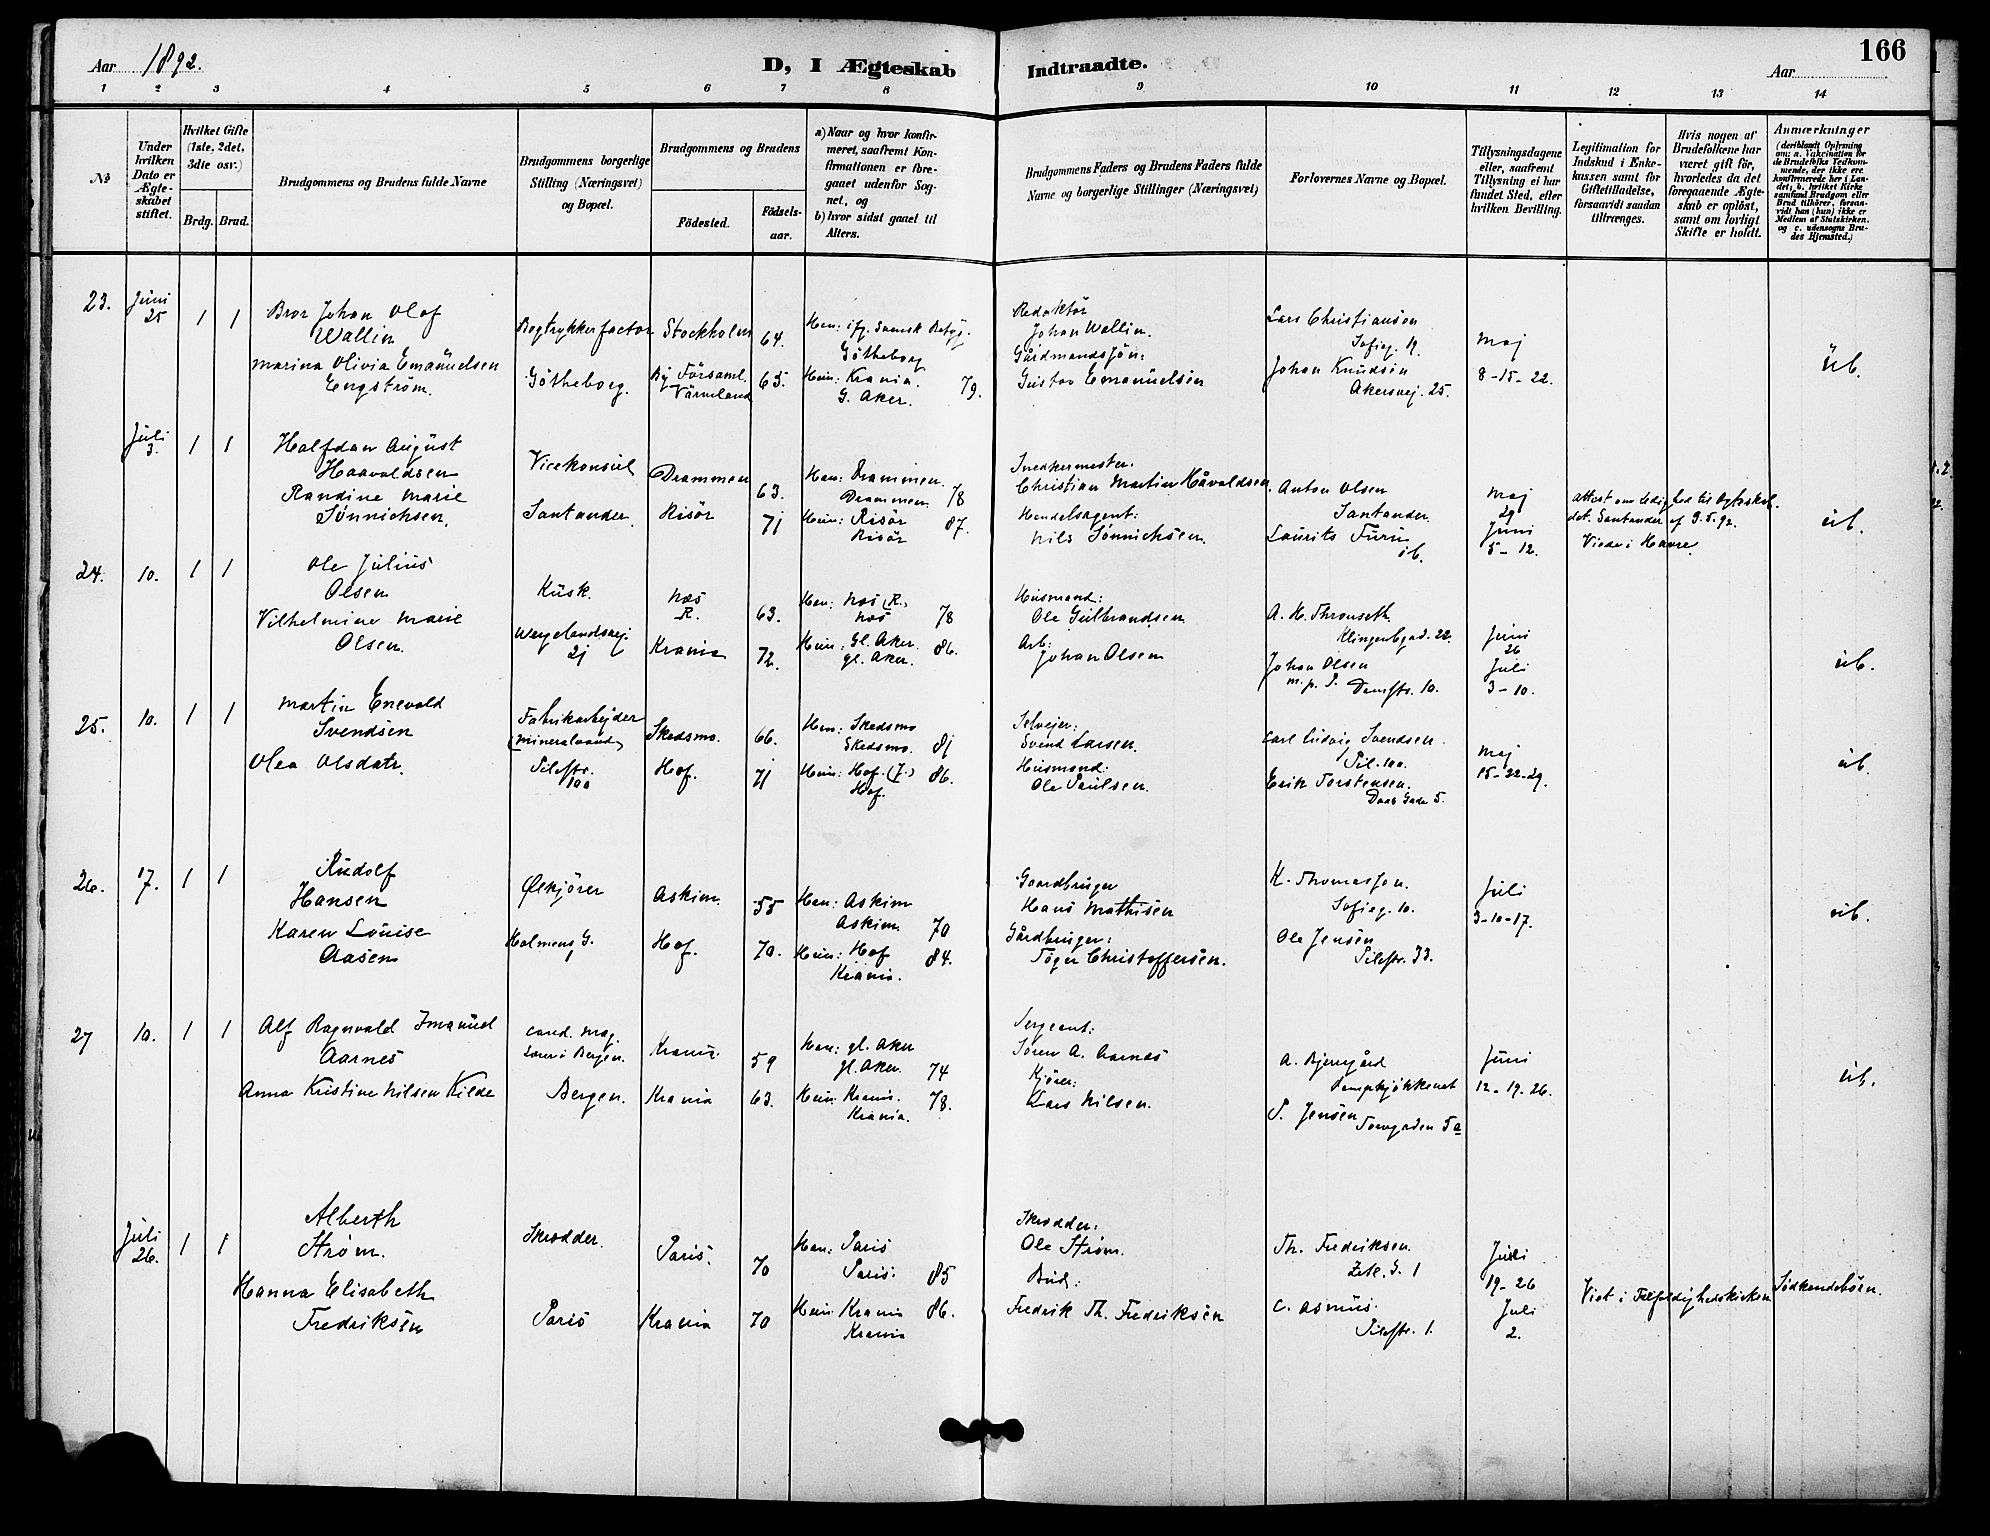 Aar 1892.
D, I Ægteskab Indtraadte.
Aar
166
1 2 3 4 5 6 7 8 9 10 11 12 13 14
No
Under hvilken Dato er Ægteskabet stiftet.
Hvilket Gifte (1ste, 2det, 3die osv.)
Brdg. Brud.
Brudgommens og Brudens fulde Navne
Brudgommens borgerlige Stilling (Næringsvei) og Bopæl.
Brudgommens og Brudens
Födested.
Födselsaar.
a) Naar og hvor konfirmeret, saafremt Konfirmationen er foregaaet udenfor Sognet, og
b) hvor sidst gaaet til Alters.
Brudgommens Faders og Brudens Faders fulde Navne og borgerlige Stillinger (Næringsvei)
Forlovernes Navne og Bopæl.
Tillysningsdagene eller, saafremt Tillysning ei har fundet Sted, efter hvilken Bevilling.
Legitimation for Indskud i Enkekassen samt for Giftetilladelse, forsaavidt saadan tiltrænges.
Hvis nogen af Brudefolkene har været gift för, hvorledes da det foregaaende Ægteskab er oplöst, samt om lovligt Skifte er holdt.
Anmærkninger (deriblandt Oplysning om: a. Vakcination for de Brudefolks Vedkommende, der ikke ere konfirmerede her i Landet; b. hvilket Kirkesamfund Brudgom eller Brud tilhörer, forsaavidt han (hun) ikke er Medlem af Statskirken, og c. udensogns Brudes Hjemsted.)
23. Juni 25 1 1
Bror Johan Olof Wallin
Bogtrykkerfactor Stockholm 64.
Han: ifg. Svensk Betyg. Götheborg
Redaktør Johan Wallin.
Lars Christiansen Sofieg. 19.
Maj 8-15-22.
Marina Olivia Emanuelsen Engström.
Götheborg. By Församl. Värmland 65.
Hun: Krania. G. Aker. 79.
Gårdmandssøn: Gustav Emanuelsen
Johan Knudsen Akersvej. 25.
ub.
Juli 3. 1 1
Halfdan August Haavaldsen
Vicekonsul Drammen 63.
Han: Drammen. Drammen 78
Snedkermester. Christian Martin Håvaldsen
Anton Olsen Santander.
Maj 29 Juni 5-12.
Attest om ledighed til Ægteskab. dat. Santander af 9.5.92. Viede i Havre
Randine Marie Sønnichsen.
Santander. Risör 71
Hun: Risör Risör 87.
Handelsagent: Nils Sønnichsen.
Laurits Furu ib.
ub.
24. 10. 1 1
Ole Julius Olsen
Kusk. Næs R. 63.
Han: Næs (R.) Næs 78
Husmand: Ole Gulbrandsen
A. H. Thronseth. Klingenbgad. 22.
Juni 26 Juli 3-10.
Vilhelmine Marie Olsen.
Wergelandsvej. 21 Krania 72.
Hun: Gl. Aker. gl. Aker. 86.
Arb: Johan Olsen
Johan Olsen m. p. P. Damstr. 10.
ub.
25. 10. 1 1
Martin Enevald Svendsen
Fabrikarbejder (Mineralvand) Skedsmo. 66.
Han: Skedsmo Skedsmo. 81
Selvejer: Svend Larsen.
Carl Ludvig Svendsen. Pil. 10a.
Maj 15-22-29.
Olea Olsdatr.
Pilestr. 10a Hof. 71
Hun: Hof. (J.) Hof. 86.
Husmand: Ole Paulsen.
Erik Torstensen. Daas Gade 5.
ub.
26. 17. 1 1
Rudolf Hansen
Ølkjører Askim. 55
Han: Askim Askim 70
Gaardbruger Hans Mathisen
K. Thomassen. Sofieg. 10.
Juli 3-10-17.
Karen Louise Aasen
Holmens G. Hof. 70.
Hun: Hof Krania. 84.
Gårdbruger: Tøger Christoffersen.
Ole Jensen Pilestr. 33.
ub.
27 10. 1 1
Alf Ragnvald Imanuel Aarnes
cand. mag. Lærer i Bergen. Krania. 59
Han: gl. Aker gl. Aker. 74
Sergeant: Søren A. Aarnes
A. Bjerregård Dampkjøkkenet
Juni 12-19-26.
Anna Kristine Nilsen Kilde
Bergen. Krania 63.
Hun: Krania. Krania. 78.
Kjører: Lars Nilsen.
P. Jensen Torvgaden 5a
ub.
Juli 26. 1 1
Alberth Strøm.
Skrædder. Paris. 70
Han: Paris Paris. 85
Skrædder: Ole Strøm.
Th. Fredriksen. Zetl. G. 1
Juni 19-26 Juli 2.
Viet i Trefoldighedskirken
Hanna Elisabeth Fredriksen
Paris Krania 70
Hun: Krania Krania 86.
Bud: Fredrik Th. Fredriksen
C. Asmus. Pilestr. 1.